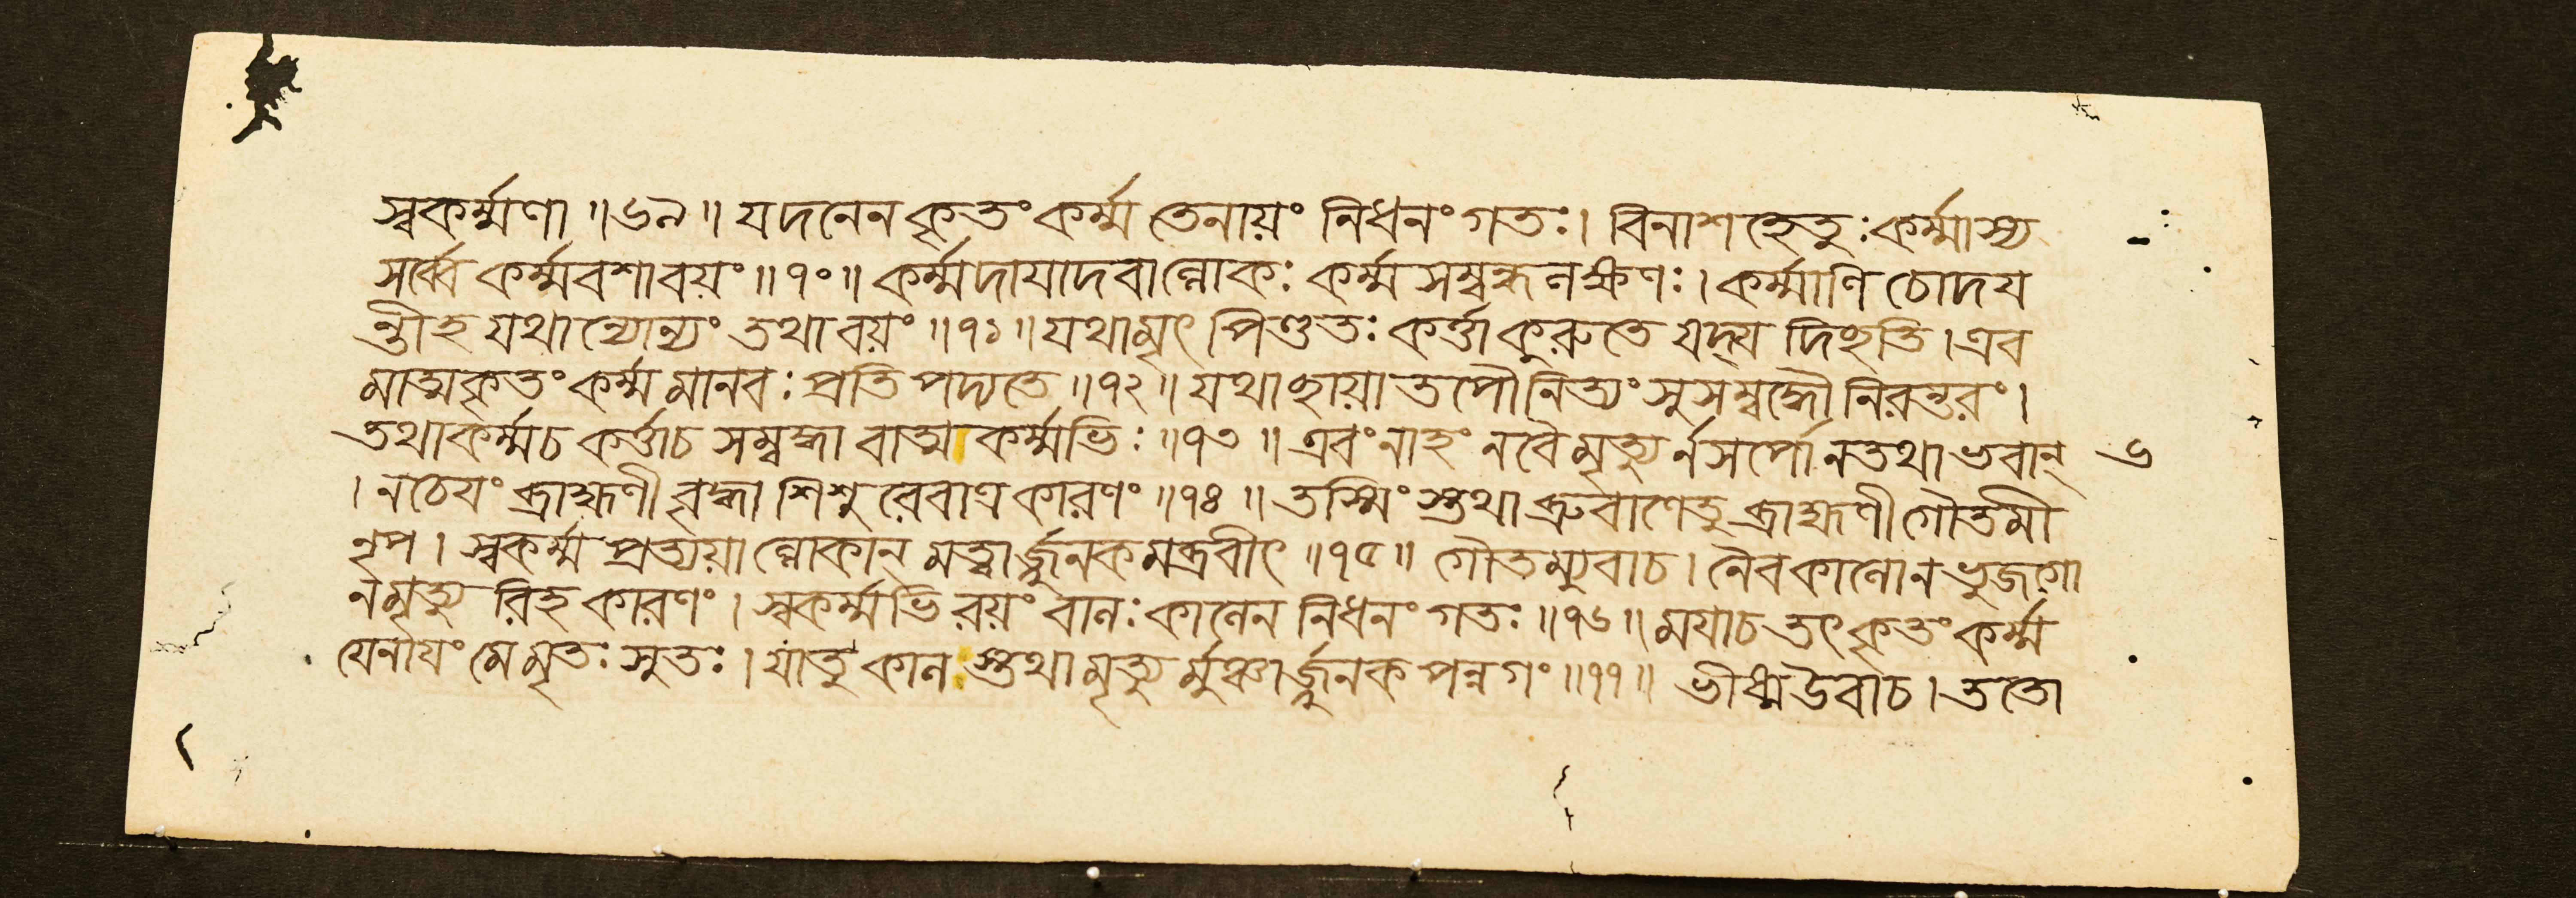 স্বকর্ম্মণা ॥৬৯॥ যদনেন কৃতং কর্ম্ম তেনায়ং নিধনং গতঃ। বিনাশ হেতুঃ কর্ম্মাস্য
সর্ব্বে কর্ম্মবশাবয়ং ॥৭০॥ কর্ম্মদাযাদবাল্লোকঃ কর্ম্ম সম্বন্ধ লক্ষণঃ। কর্ম্মাণি চোদয
ন্তীহ যথান্যোন্যং তথা বয়ং ॥৭১॥ যথা মৃৎ পিণ্ডতঃ কর্ত্তা কুরুতে যদ্য দিছতি। এব
মাত্মকৃতং কর্ম্ম মানবঃ প্রতি পদ্যতে ॥৭২॥ যথা ছায়া তপৌ নিত্যং সুসম্বদ্ধৌ নিরন্তরং।
তথা কর্ম্মচ কর্ত্তাচ সম্বদ্ধা বাত্ম কর্ম্মভিঃ ॥৭৩॥ এবং নাহং নবৈ মৃত্যু র্নসর্পো নতথা ভবান্ ৬
। নচেযং ব্রাহ্মণী বৃদ্ধা শিশু রেবাত্র কারণং ॥৭৪॥ তস্মিং স্তথা ব্রুবাণেতু ব্রাহ্মণী গৌতমী
নৃপ। স্বকর্ম্ম প্রত্যয়া ল্লোকান্ মত্বার্জ্জুনকমব্রবীৎ ॥৭৫॥ গৌতম্যুবাচ। নৈব কালোন ভুজগো
নমৃত্যু রিহ কারণং। স্বকর্ম্মভি রয়ং বালঃ কালেন নিধনং গতঃ ॥৭৬॥ মযাচ তৎ কৃতং কর্ম্ম
যেনাযং মে মৃতঃ সুতঃ। যাতু কাল স্তথা মৃত্যু র্মুঞ্চার্জ্জুনক পন্নগং ॥৭৭॥ ভীষ্ম উবাচ। ততো